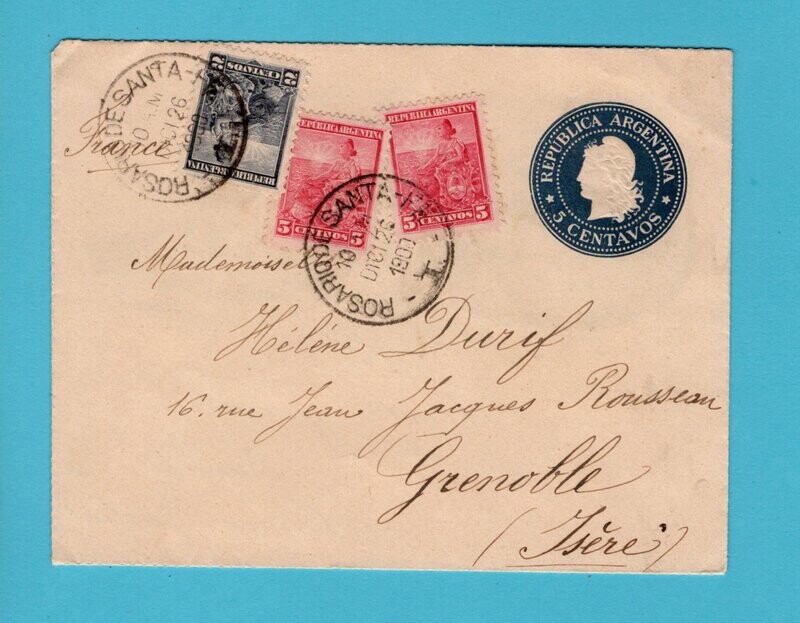 REPUBLICA ARGENTINA
5 CENTAVOS
2 CENTAVOS 2
REPUBLICA ARGENTINA
REPUBLICA ARGENTINA
5 CENTAVOS 5
REPUBLICA ARGENTINA
5 CENTAVOS 5
ROSARIO DE SANTA-FE
26
ROSARIO DE SANTA-FE
10
DIC 26
1900
T
France
Mademoisel
Hélène Durif
16. rue Jean Jacques Rousseau
Grenoble
(Isère)